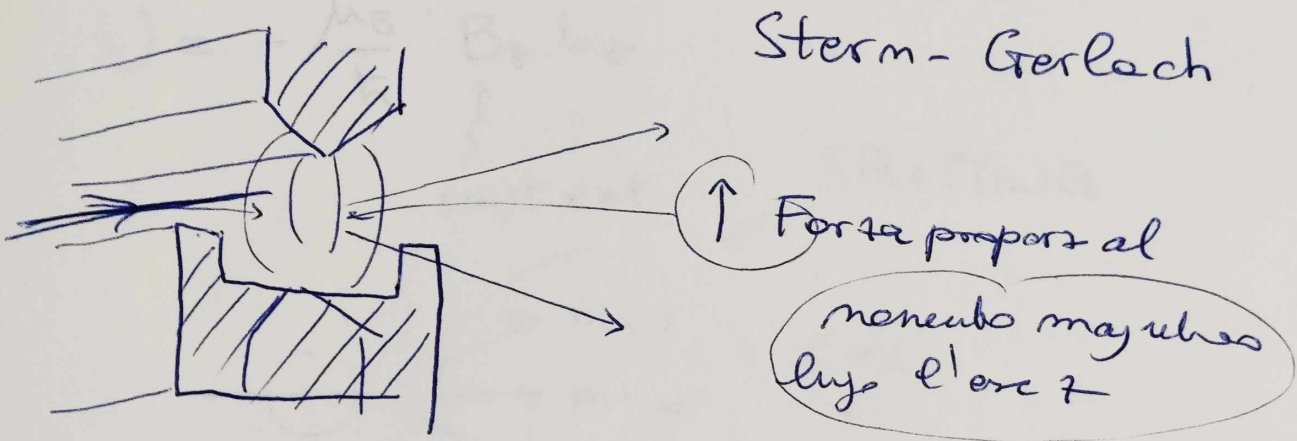 Stern-Gerlach
Forza proporz al
momento magnetico
lungo l'asse z